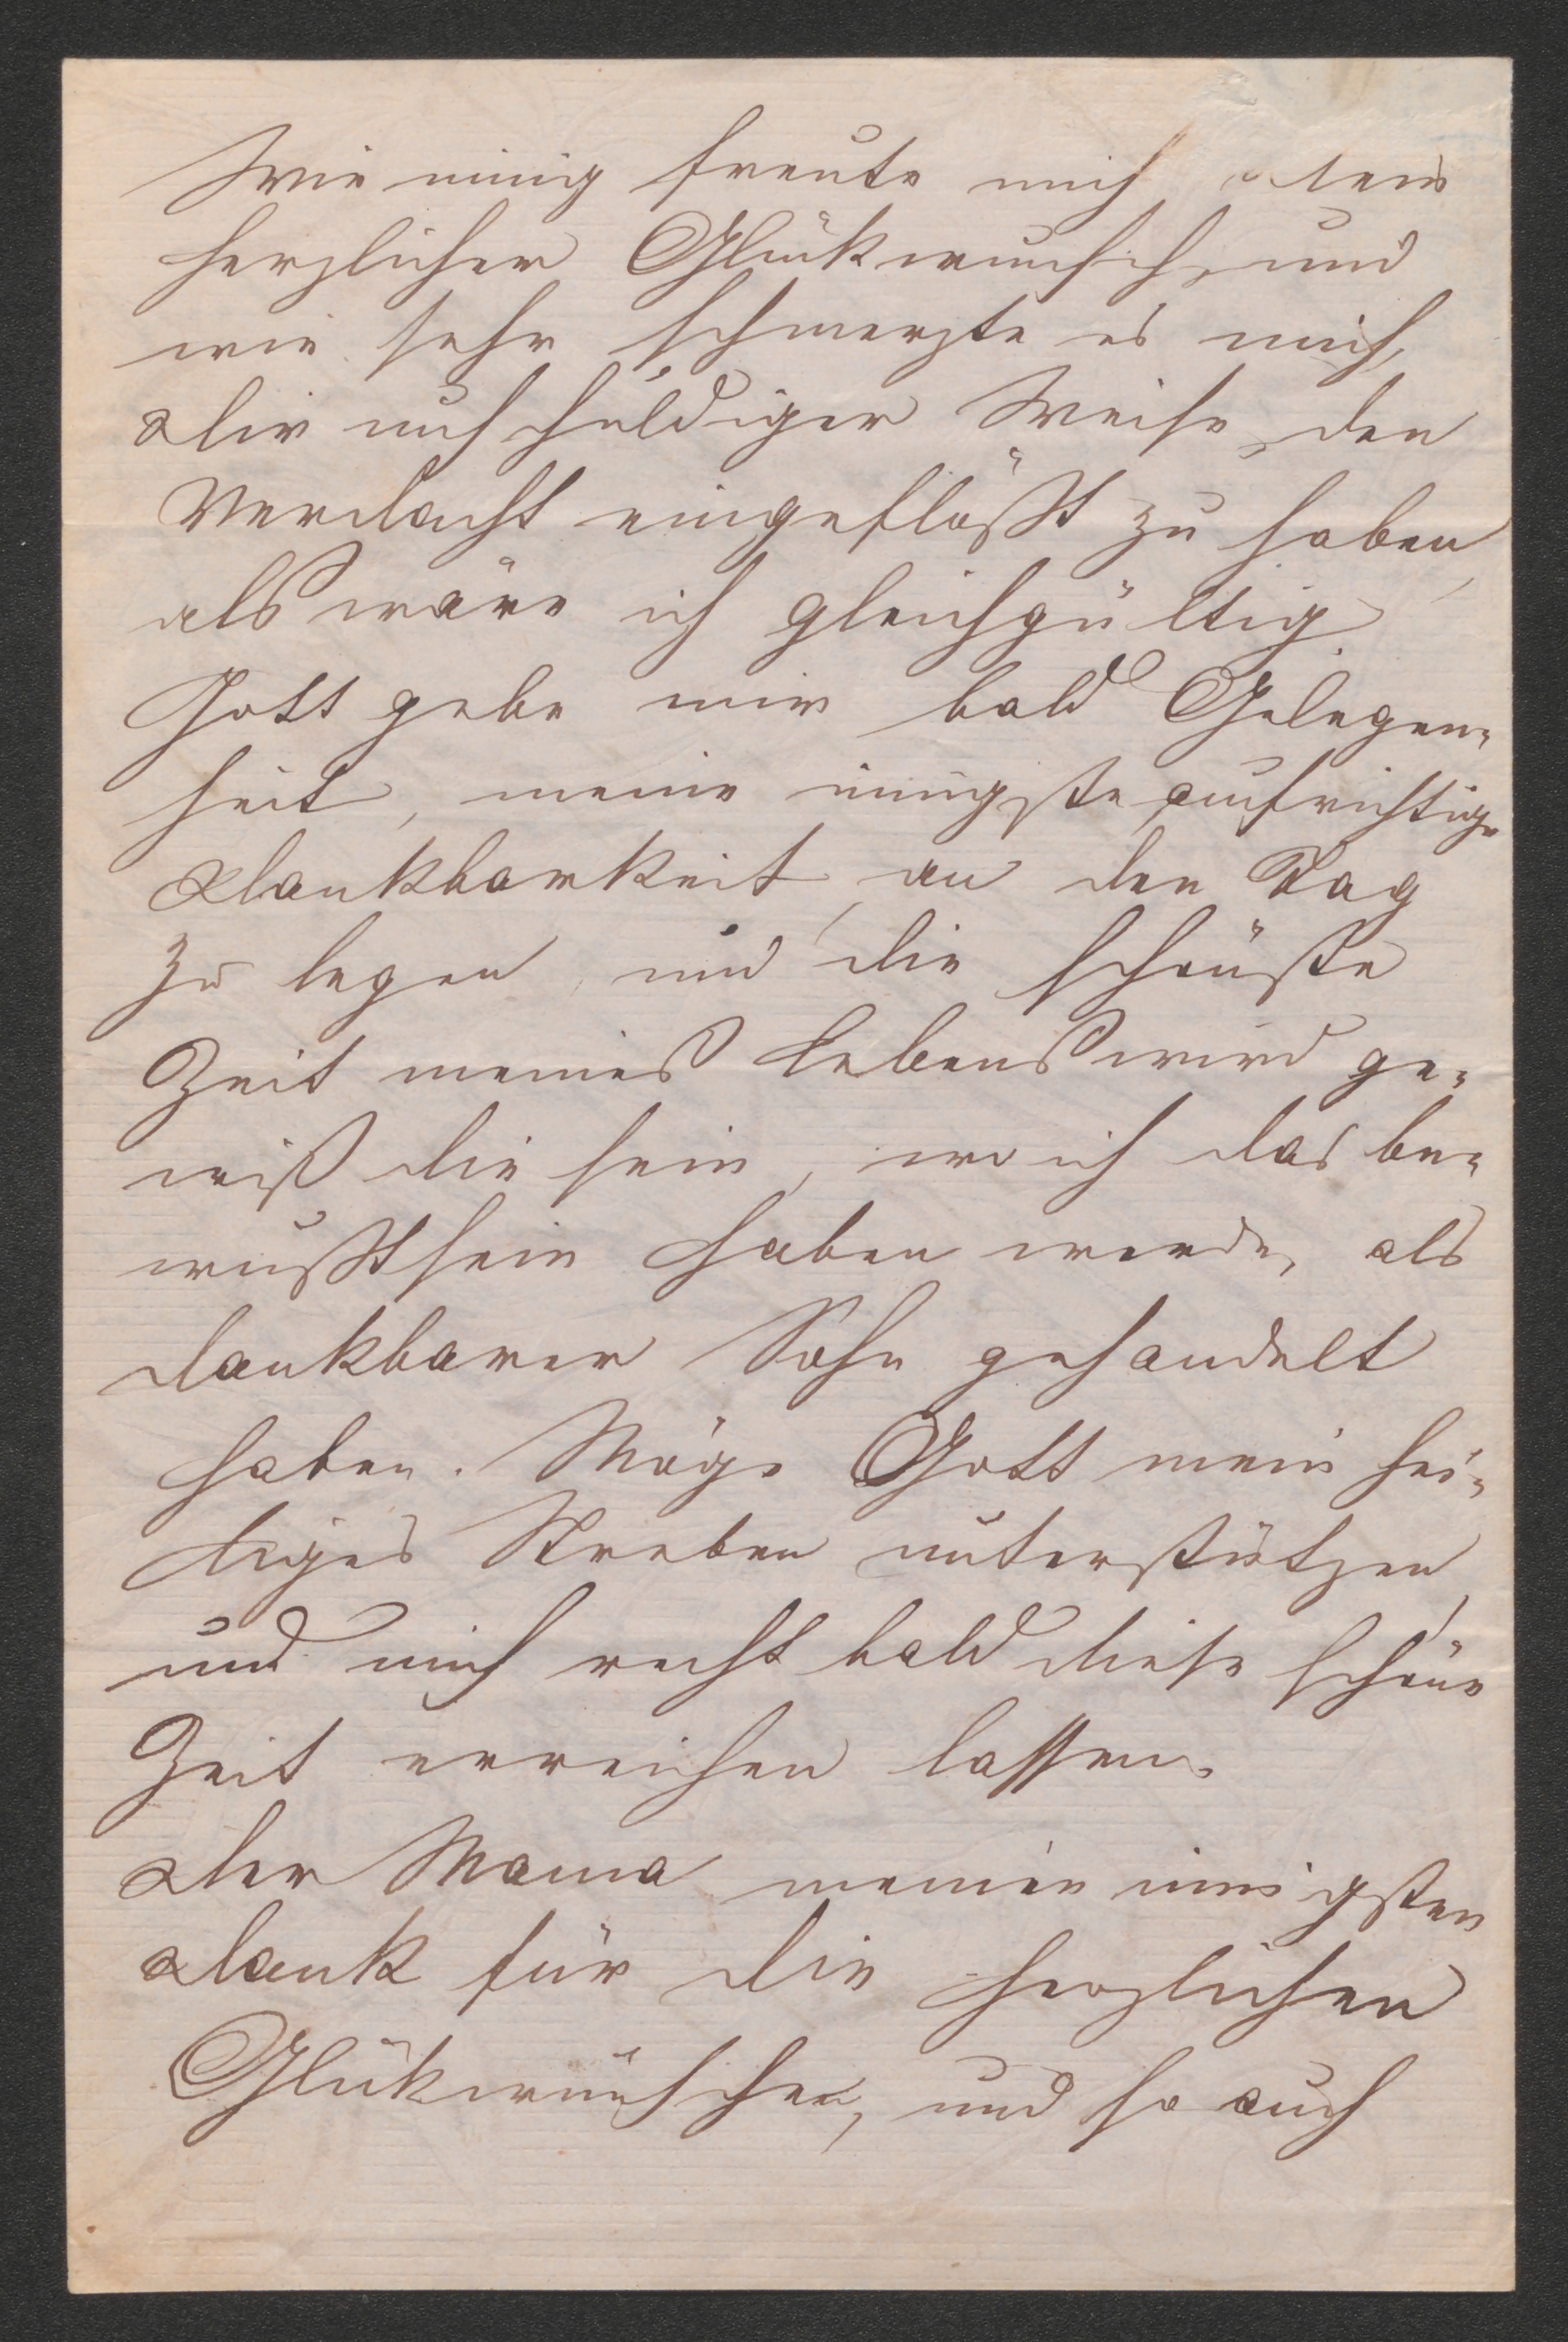 Wie innig freute mich Dein
herzlicher Glückwunsch, und
wie sehr schmerzte es mich,
Dir unschuldiger Weise den
Verdacht eingeflößt zu haben,
als wäre ich gleichgültig.
Gott gebe mir bald Gelegen-
heit, meine innigste aufrichtige
Dankbarkeit an den Tag
zu legen, und die schönste
Zeit meines Lebens wird ge-
wiß die sein, wo ich das be-
wußtsein haben werde, als
dankbarer Sohn gehandelt
haben. Möge Gott mein hei-
liges Streben unterstützen,
und mich recht bald diese schöne
Zeit erreichen lassen.
Der Mama meinen innigsten
Dank für die herzlichen
Glükwünsche, und so auch